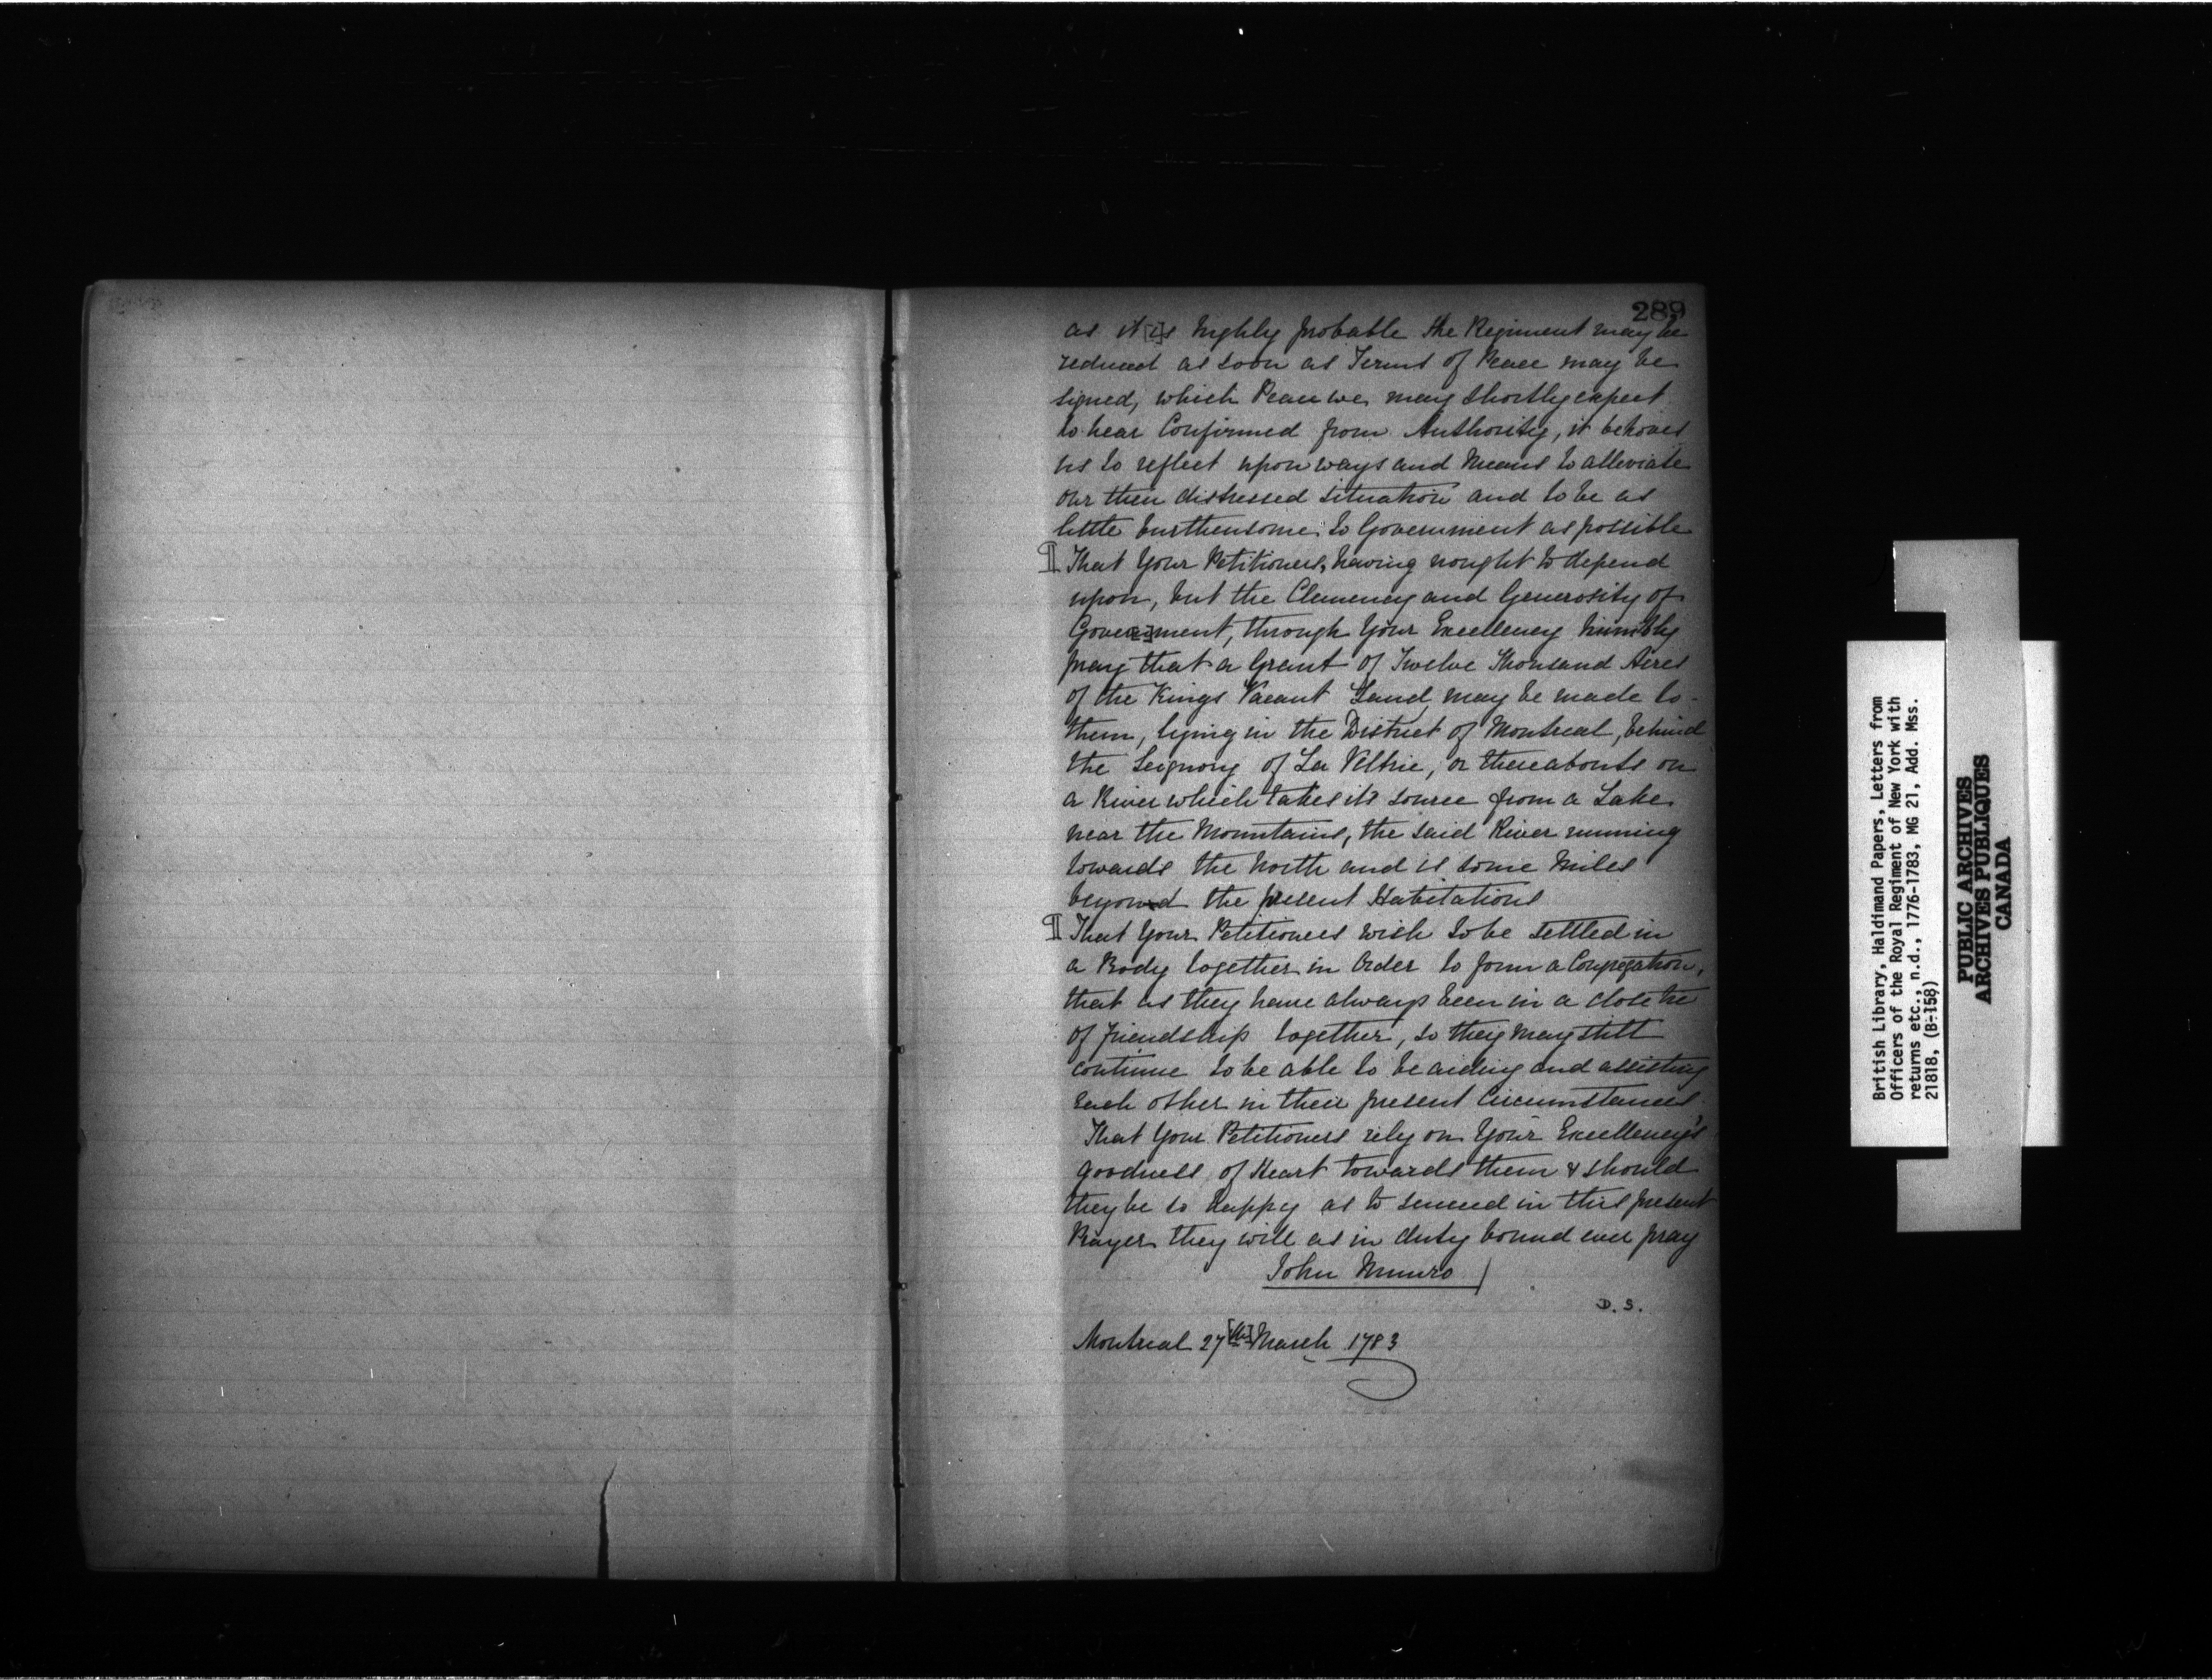 289
as it [i]s highly probable the Regiment may be
reduced as soon as Terms of Peace may be
signed, which Peace we may shortly expect
to hear Confirmed from Authority, it behoves
us to reflect upon ways and Means to alleviate
our then distressed situation and to be as
little burthensome to Government as possible
¶ That Your Petitioners, having nought to depend
upon, but the Clemency and Generosity of
Gove[rn]ment, through Your Excellency humbly
pray that a Grant of Twelve Thousand Acres
of the Kings Vacant Land may be made to
them, lying in the District of Montreal, behind
the Seignory of La Valtrie, or thereabouts on
a River which takes its source from a Lake
near the Mountains, the said River running
towards the North and is some Miles
beyond the present Habitations
¶ That Your Petitioners wish to be settled in
a Body together in Order to form a Congregation,
that as they have always been in a close tie
of friendship together, so they may still
continue to be able to be aiding and assisting
each other in their present Circumstances.
That Your Petitioners rely on Your Excellency's
goodness of Heart towards them & should
they be so happy as to succeed in this present
Prayer they will as in duty bound ever pray
John Munro
D. S.
Montreal 27[th] March 1783
British Library, Haldimand Papers, Letters from
Officers of the Royal Regiment of New York with
returns etc., n.d., 1776-1783, MG 21, Add. Mss.
21818, (B-158)
PUBLIC ARCHIVES
ARCHIVES PUBLIQUES
CANADA